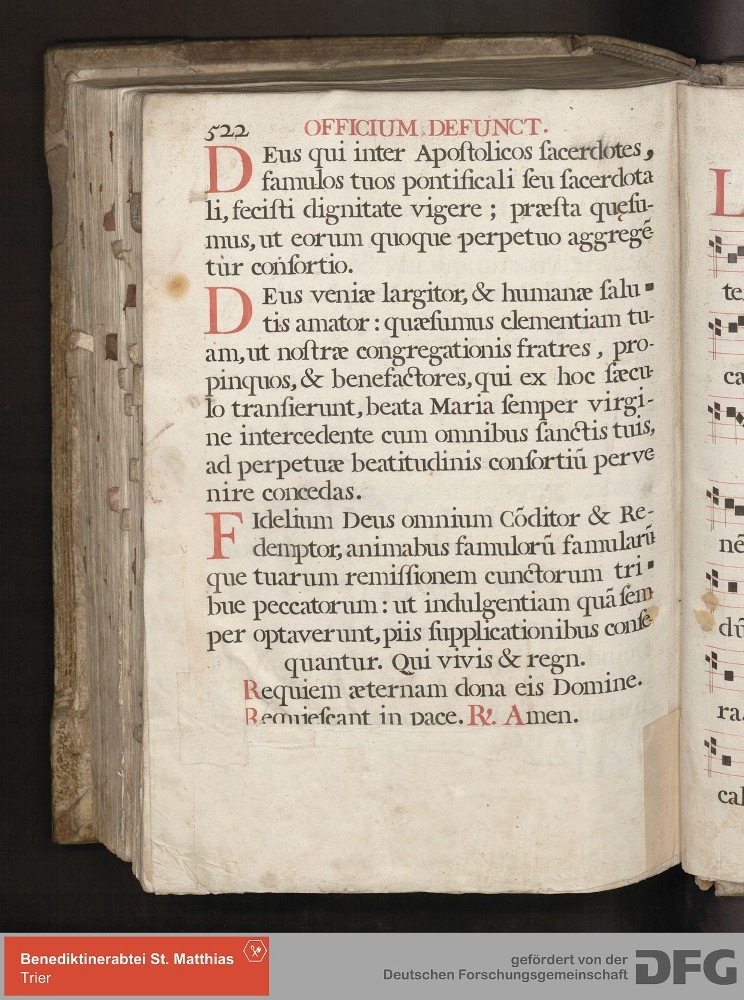 522 OFFICIUM DEFUNCT.
DEus qui inter Apoſtolicos ſacerdotes,
famulos tuos pontificali ſeu ſacerdota
li, feciſti dignitate vigere ; præſta quęſu-
mus, ut eorum quoque perpetuo aggregē
tur conſortio.
DEus veniæ largitor, & humanæ ſalu
tis amator : quæſumus clementiam tu-
am, ut noſtræ congregationis fratres , pro-
pinquos, & benefactores, qui ex hoc ſæcu-
lo tranſierunt, beata Maria ſemper virgi-
ne intercedente cum omnibus ſanctis tuis,
ad perpetuæ beatitudinis conſortiū perve
nire concedas.
FIdelium Deus omnium Cōditor & Re-
demptor, animabus famulorū famularū
que tuarum remiſſionem cunctorum tri
bue peccatorum : ut indulgentiam quā ſem
per optaverunt, piis ſupplicationibus conſe
quantur. Qui vivis & regn.
Requiem æternam dona eis Domine.
Requieſcant in pace. R℣. Amen.
L
te
ca
nē
dū
ra.
cal
Benediktinerabtei St. Matthias
Trier
gefördert von der
Deutschen Forschungsgemeinschaft
DFG